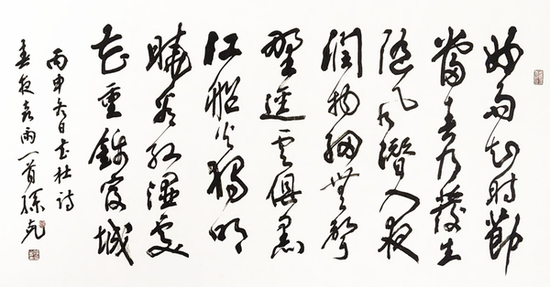 好雨知时節
當春乃發生
随风潛入夜
润物細無聲
野逕云俱黑
江船火獨明
曉看紅濕處
花重錦官城
丙申冬日書杜詩
春夜喜雨一首孫克